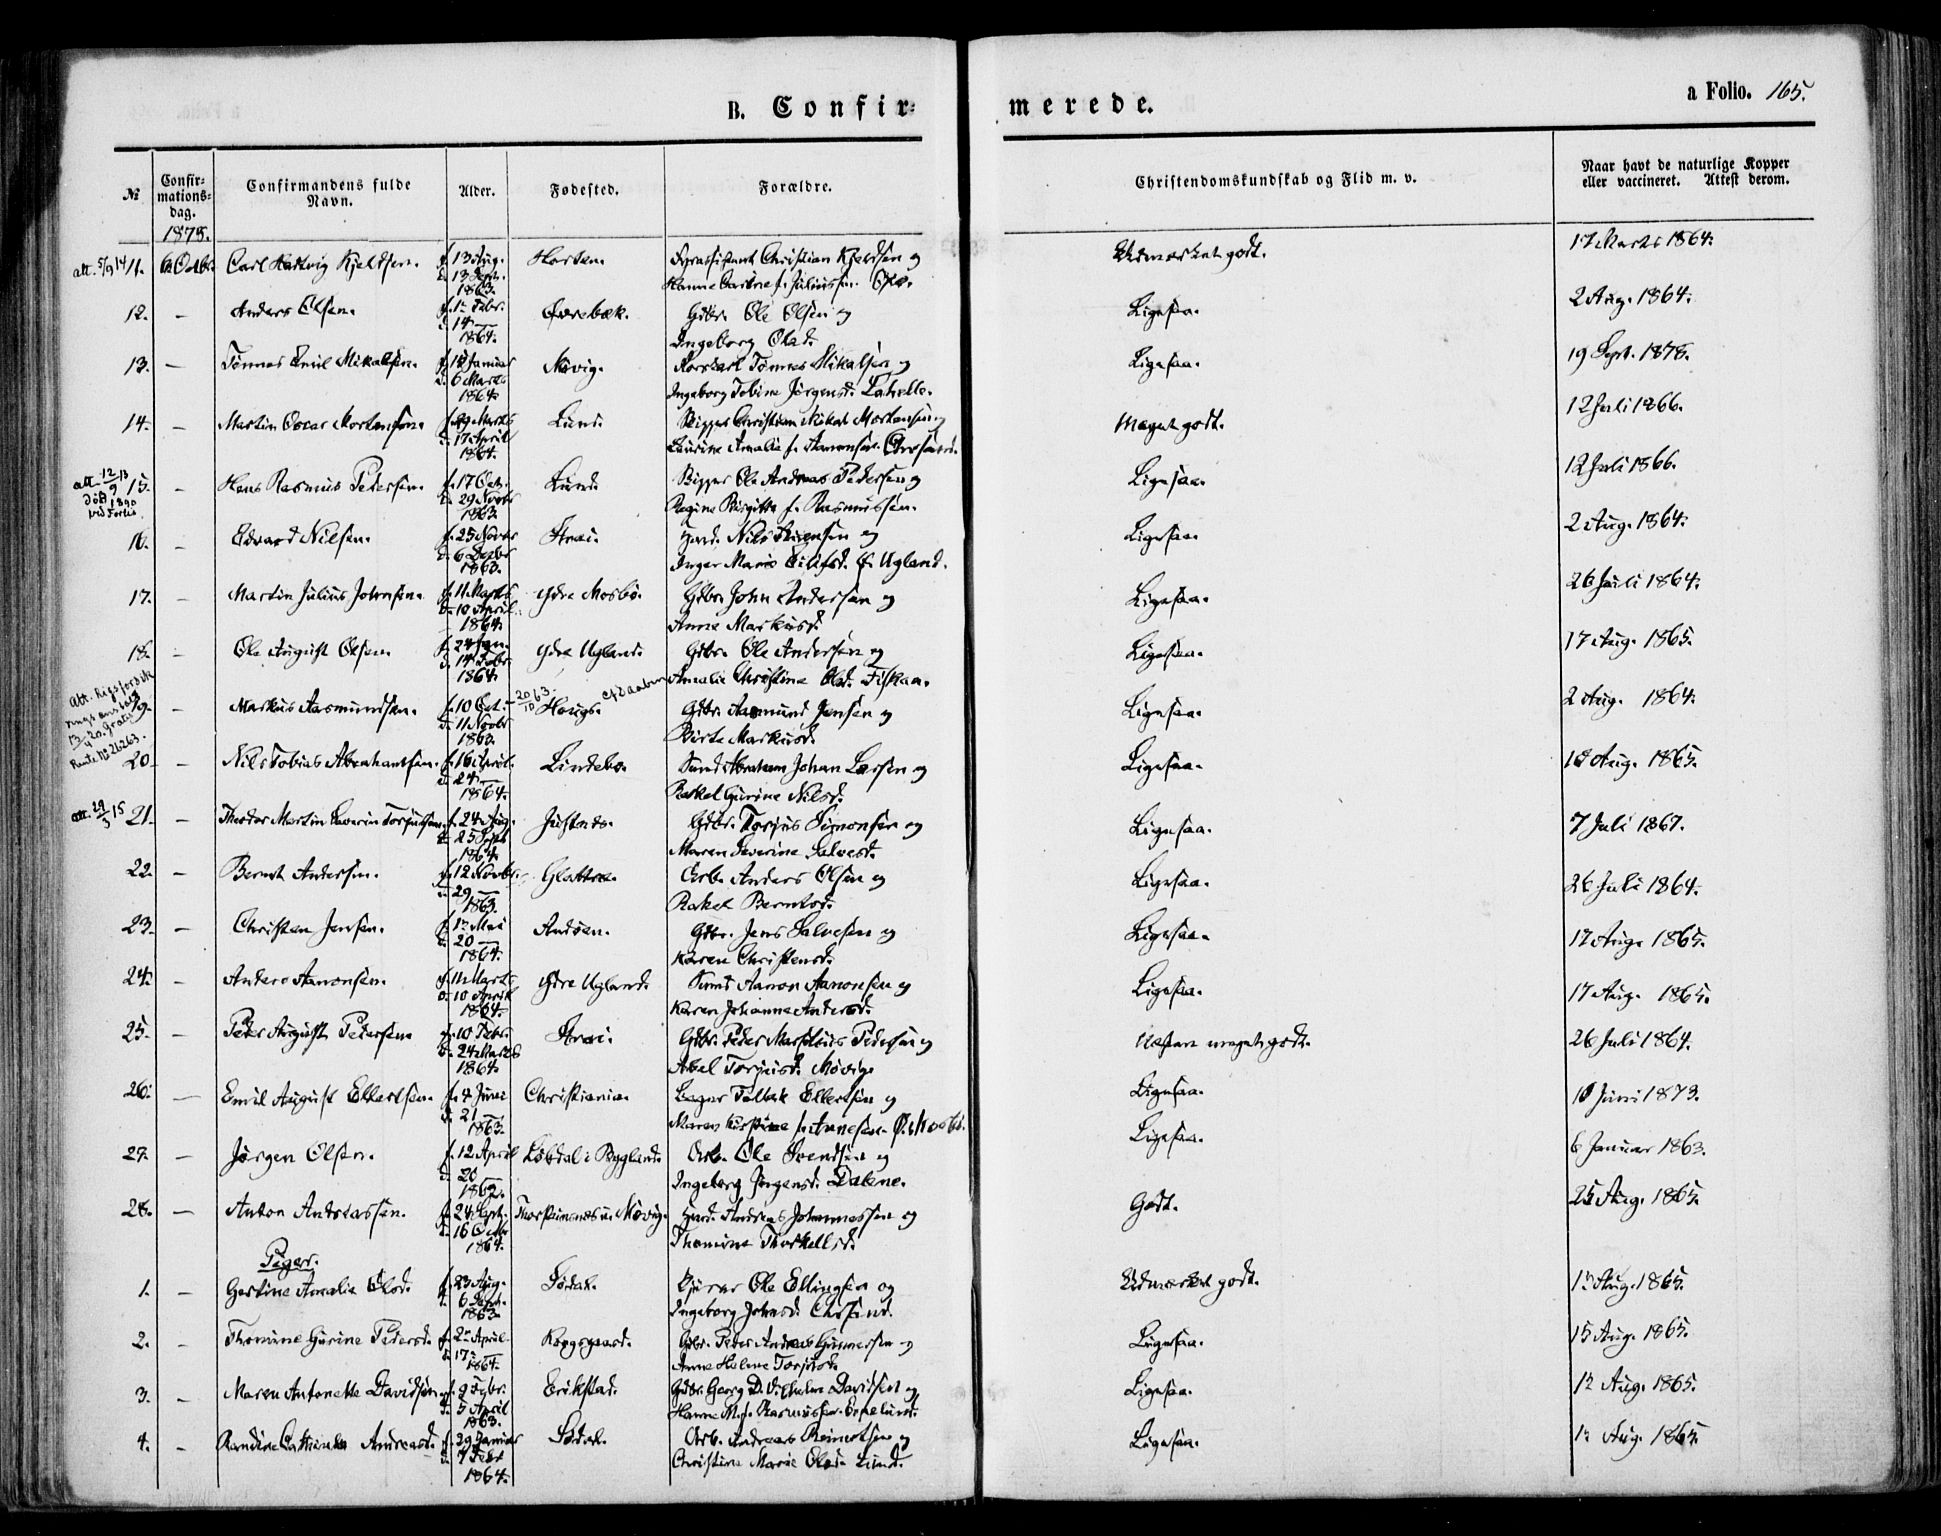 B. Confir-merede.
a Folio. 165.
№
Confir-mations-dag.
Confirmandens fulde Navn.
Alder.
Fødested.
Forældre.
Christendomskundskab og Flid m. v.
Naar havt de naturlige Kopper eller vaccineret. Attest derom.
1878.
att. 5/9 14 11. 6 Octbr. Carl Hartvig Kjeldsen. f. 13 Aug. d. 13 Sept. 1863. Horten. Christian Kjeldsen og Udmærket godt. 17 Marts 1864.
12. – Anders Olsen. f. 1 Febr. d. 14 — 1864. Gdbr. Ole Olsen og Ligesaa. 2 Aug. 1864.
Ingeborg Olsd.
13. – Tønnes Emil Mikalsen. f. 12 Januar d. 6 Marts 1864. Møvig. Tønnes Mikalsen og Ligesaa. 19 Sept. 1878.
Ingeborg Tobine Jørgensd.
14. – Martin Oscar Mortensen. f. 29 Marts d. 17 April 1864. Lund. Skipper Christian Mikal Mortensen og Meget godt. 12 Juli 1866.
Laurine Amalia f. Aanensen. Chrsand.
att. 12/9 13 død 1890 15. – Hans Rasmus Pedersen. f. 17 Oct. d. 29 Novbr 1863. Lund. Skipper Ole Andreas Pedersen og Ligesaa. 12 Juli 1866.
Regine Birgitte f. Rasmussen.
16. – Edvard Nilsen. f. 25 Novbr d. 6 Decbr 1863. Strai. Nils og Ligesaa. 2 Aug. 1864.
Inger Marie Eilifsd. Ugland.
17. – Martin Julius Johnsen. f. 11 Marts d. 10 April 1864. Ydre Mosbø. Gdbr. John Andersen og Ligesaa. 26 Juli 1864.
Anne Markusd.
18. – Ole August Olsen. f. 24 Jan. d. 14 Febr 1864. Ydre Ugland. Gdbr. Ole Andersen og Ligesaa. 17 Aug. 1865.
Amalia Christine Olsd. Fiskaa.
19. – Markus Aasmundsen. f. 10 Oct. d. 11 Novbr 1863. 20/10 63. Haugs. Gdbr. Aasmund Jensen og Ligesaa. 2 Aug. 1864.
Birte Markusd.
20. – Nils Tobias Abrahamsen. f. 16 April d. 24 — 1864. Lindebø. Abraham Johan Larsen og Ligesaa. 18 Aug. 1865.
Rakel Gurine Nilsd.
att. 29/3 15 21. – Theodor Martin Severin Torjussen. f. 24 Aug. d. 25 Sept 1864. Justnes. Gdbr. Torjus Simonsen og Ligesaa. 7 Juli 1867.
Maren Severine Salvesd.
22. – Bernt Andersen. f. 12 Novbr. d. 29 — 1863. Glattre. Arb. Anders Olsen og Ligesaa. 26 Juli 1864.
Rakel Berntsd.
23. – Christen Jensen. f. 1 Mai d. 20 — 1864. Andøen. Gdbr. Jens Salvesen og Ligesaa. 17 Aug. 1865.
Karen Christensd.
24. – Anders Aanonsen. f. 11 Marts d. 10 April 1864. Ydre Ugland. Aanon Aanonsen og Ligesaa. 17 Aug. 1865.
Karen Johanne Andersd.
25. – Peder August Pedersen. f. 10 Febr. d. 24 Marts 1864. Strai. Gdbr. Peder Marselius Pedersen og Næsten meget godt. 26 Juli 1864.
Abel Torjusd. Møvig.
26. — Emil August Ellertsen. f. 4 Juni d. 21 — 1863. Christiania. Ellertsen og Ligesaa. 10 Juni 1873.
Maren
27. – Jørgen Olsen. f. 12 April d. 20 — 1862. i Bygland. Arb. Ole Svendsen og Ligesaa. 6 Januar 1863.
Ingeborg Jørgensd. Dalene.
28. — Anton Andreassen. f. 24 Sept. d. 16 Octbr 1864. u. Møvig. Andreas Johannessen og Godt. 25 Aug. 1865.
Thomine Thorkellsd.
Piger.
1. – Gustine Amalia Olsd. f. 23 Aug. d. 6 Sept. 1863. Sødal. Ole Ellingsen og Udmærket godt. 17 Aug. 1865.
Ingeborg Johnsd. Chrsand.
2. – Thomine Gurine Pedersd. f. 2 April d. 17 — 1864. Kongsgaard. Gdbr. Peder Andreas Gunnersen og Ligesaa. 15 Aug. 1865.
Anne Helene Torjusd.
3. – Maren Antonette Davidsen. f. 9 Febr. d. 5 April 1863. Erikstad. Gdbr. Georg D. Vilhelm Davidsen og Ligesaa. 12 Aug. 1865.
Hanne M. f. Rasmussen.
4. – Randine Cathinka Andreasd. f. 29 Januar d. 7 Febr 1864. Sødal. Arb. Andreas Reinertsen og Ligesaa. 12 Aug. 1865.
Christine Marie Olsd. Lund.